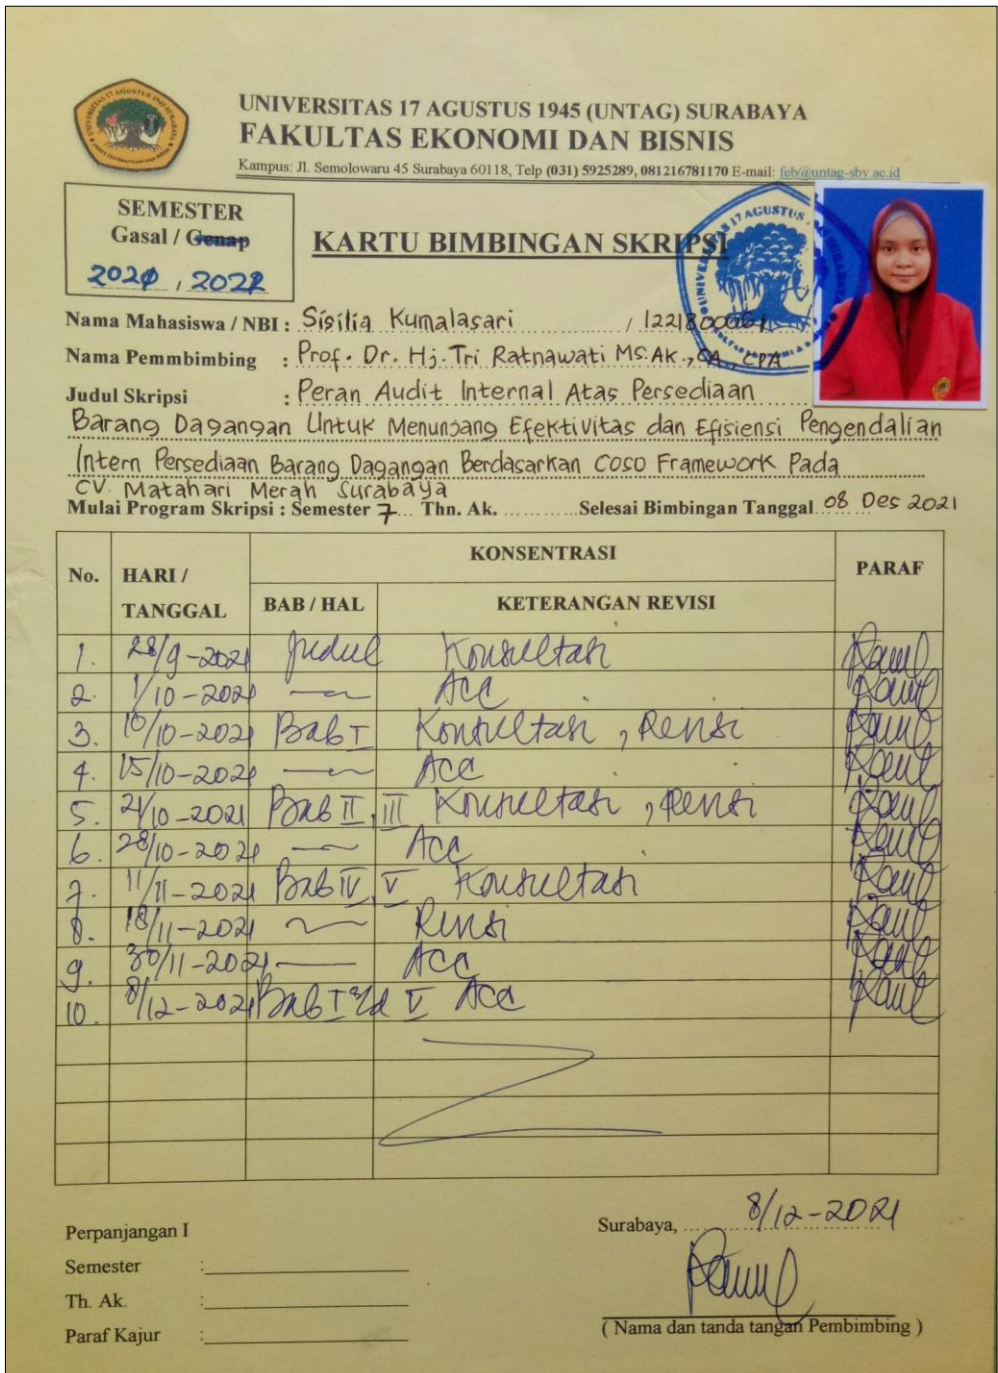 UNIVERSITAS 17 AGUSTUS 1945 (UNTAG) SURABAYA
FAKULTAS EKONOMI DAN BISNIS
Kampus: Jl. Semolowaru 45 Surabaya 60118, Telp (031) 5925289, 081216781170 E-mail: feb@untag-sby.ac.id
SEMESTER
Gasal / Genap
2021, 2022
KARTU BIMBINGAN SKRIPSI
Nama Mahasiswa / NBI : Sisilia Kumalasari / 1221800061
Nama Pemmbimbing : Prof. Dr. Hj. Tri Ratnawati MS.AK., CA., CPA
Judul Skripsi : Peran Audit Internal Atas Persediaan
Barang Dagangan Untuk Menunjang Efektivitas dan Efisiensi Pengendalian
Intern Persediaan Barang Dagangan Berdasarkan COSO Framework Pada
CV. Matahari Merah Surabaya
Mulai Program Skripsi : Semester 7 Thn. Ak. ............ Selesai Bimbingan Tanggal 08 Des 2021
No. HARI / TANGGAL KONSENTRASI PARAF
BAB / HAL KETERANGAN REVISI
1. 28/9-2021 Judul Konsultasi
2. 1/10-2021 Acc
3. 10/10-2021 Bab I Konsultasi, Revisi
4. 15/10-2021 Acc
5. 21/10-2021 Bab II, III Konsultasi, Revisi
6. 28/10-2021 Acc
7. 11/11-2021 Bab IV, V Konsultasi
8. 18/11-2021 Revisi
9. 30/11-2021 Acc
10. 8/12-2021 Bab I s/d V Acc
Perpanjangan I
Semester :
Th. Ak. :
Paraf Kajur :
Surabaya, 8/12-2021
( Nama dan tanda tangan Pembimbing )